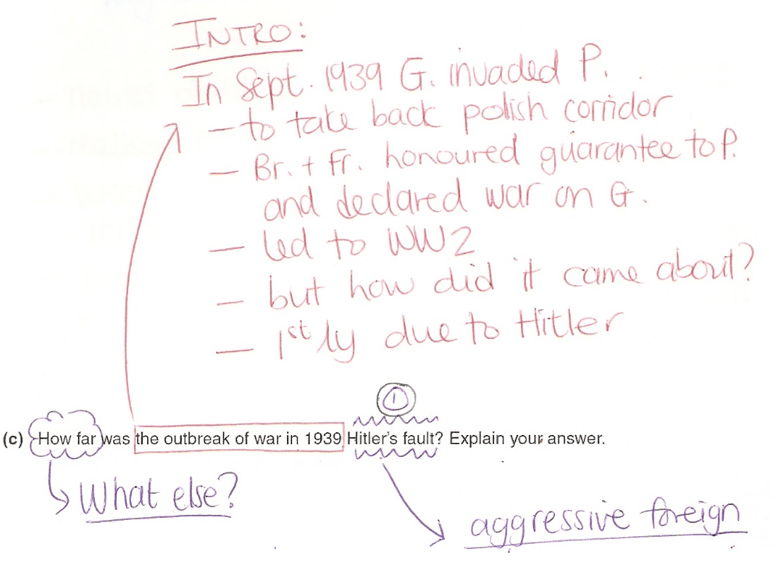 INTRO:
In Sept. 1939 G. invaded P.
- to take back polish corridor
- Br. + Fr. honoured guarantee to P.
and declared war on G.
- led to WW2
- but how did it came about?
- 1st ly due to Hitler
1
(c) How far was the outbreak of war in 1939 Hitler's fault? Explain your answer.
What else?
aggressive foreign